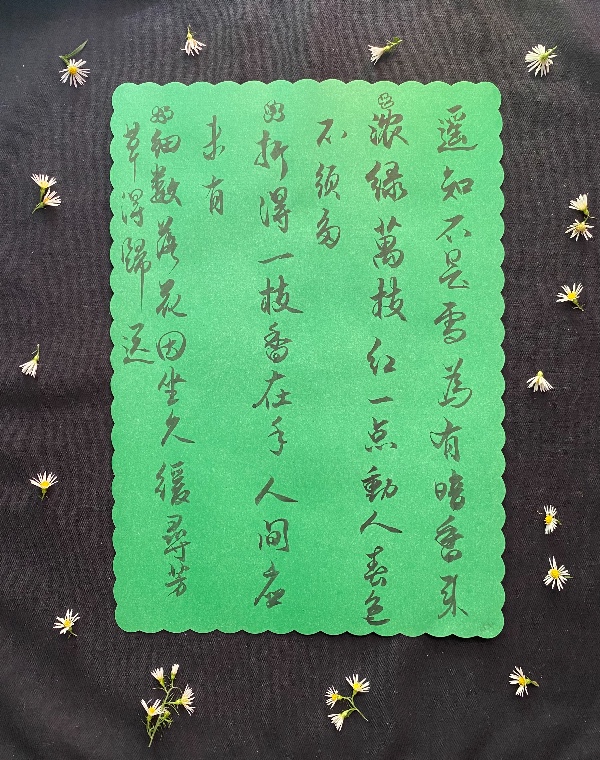 遥知不是雪為有暗香来
濃绿萬枝红一点動人春色
不须多
折得一枝香在手人间应
未有
细数落花因坐久缓尋芳
草得歸迟